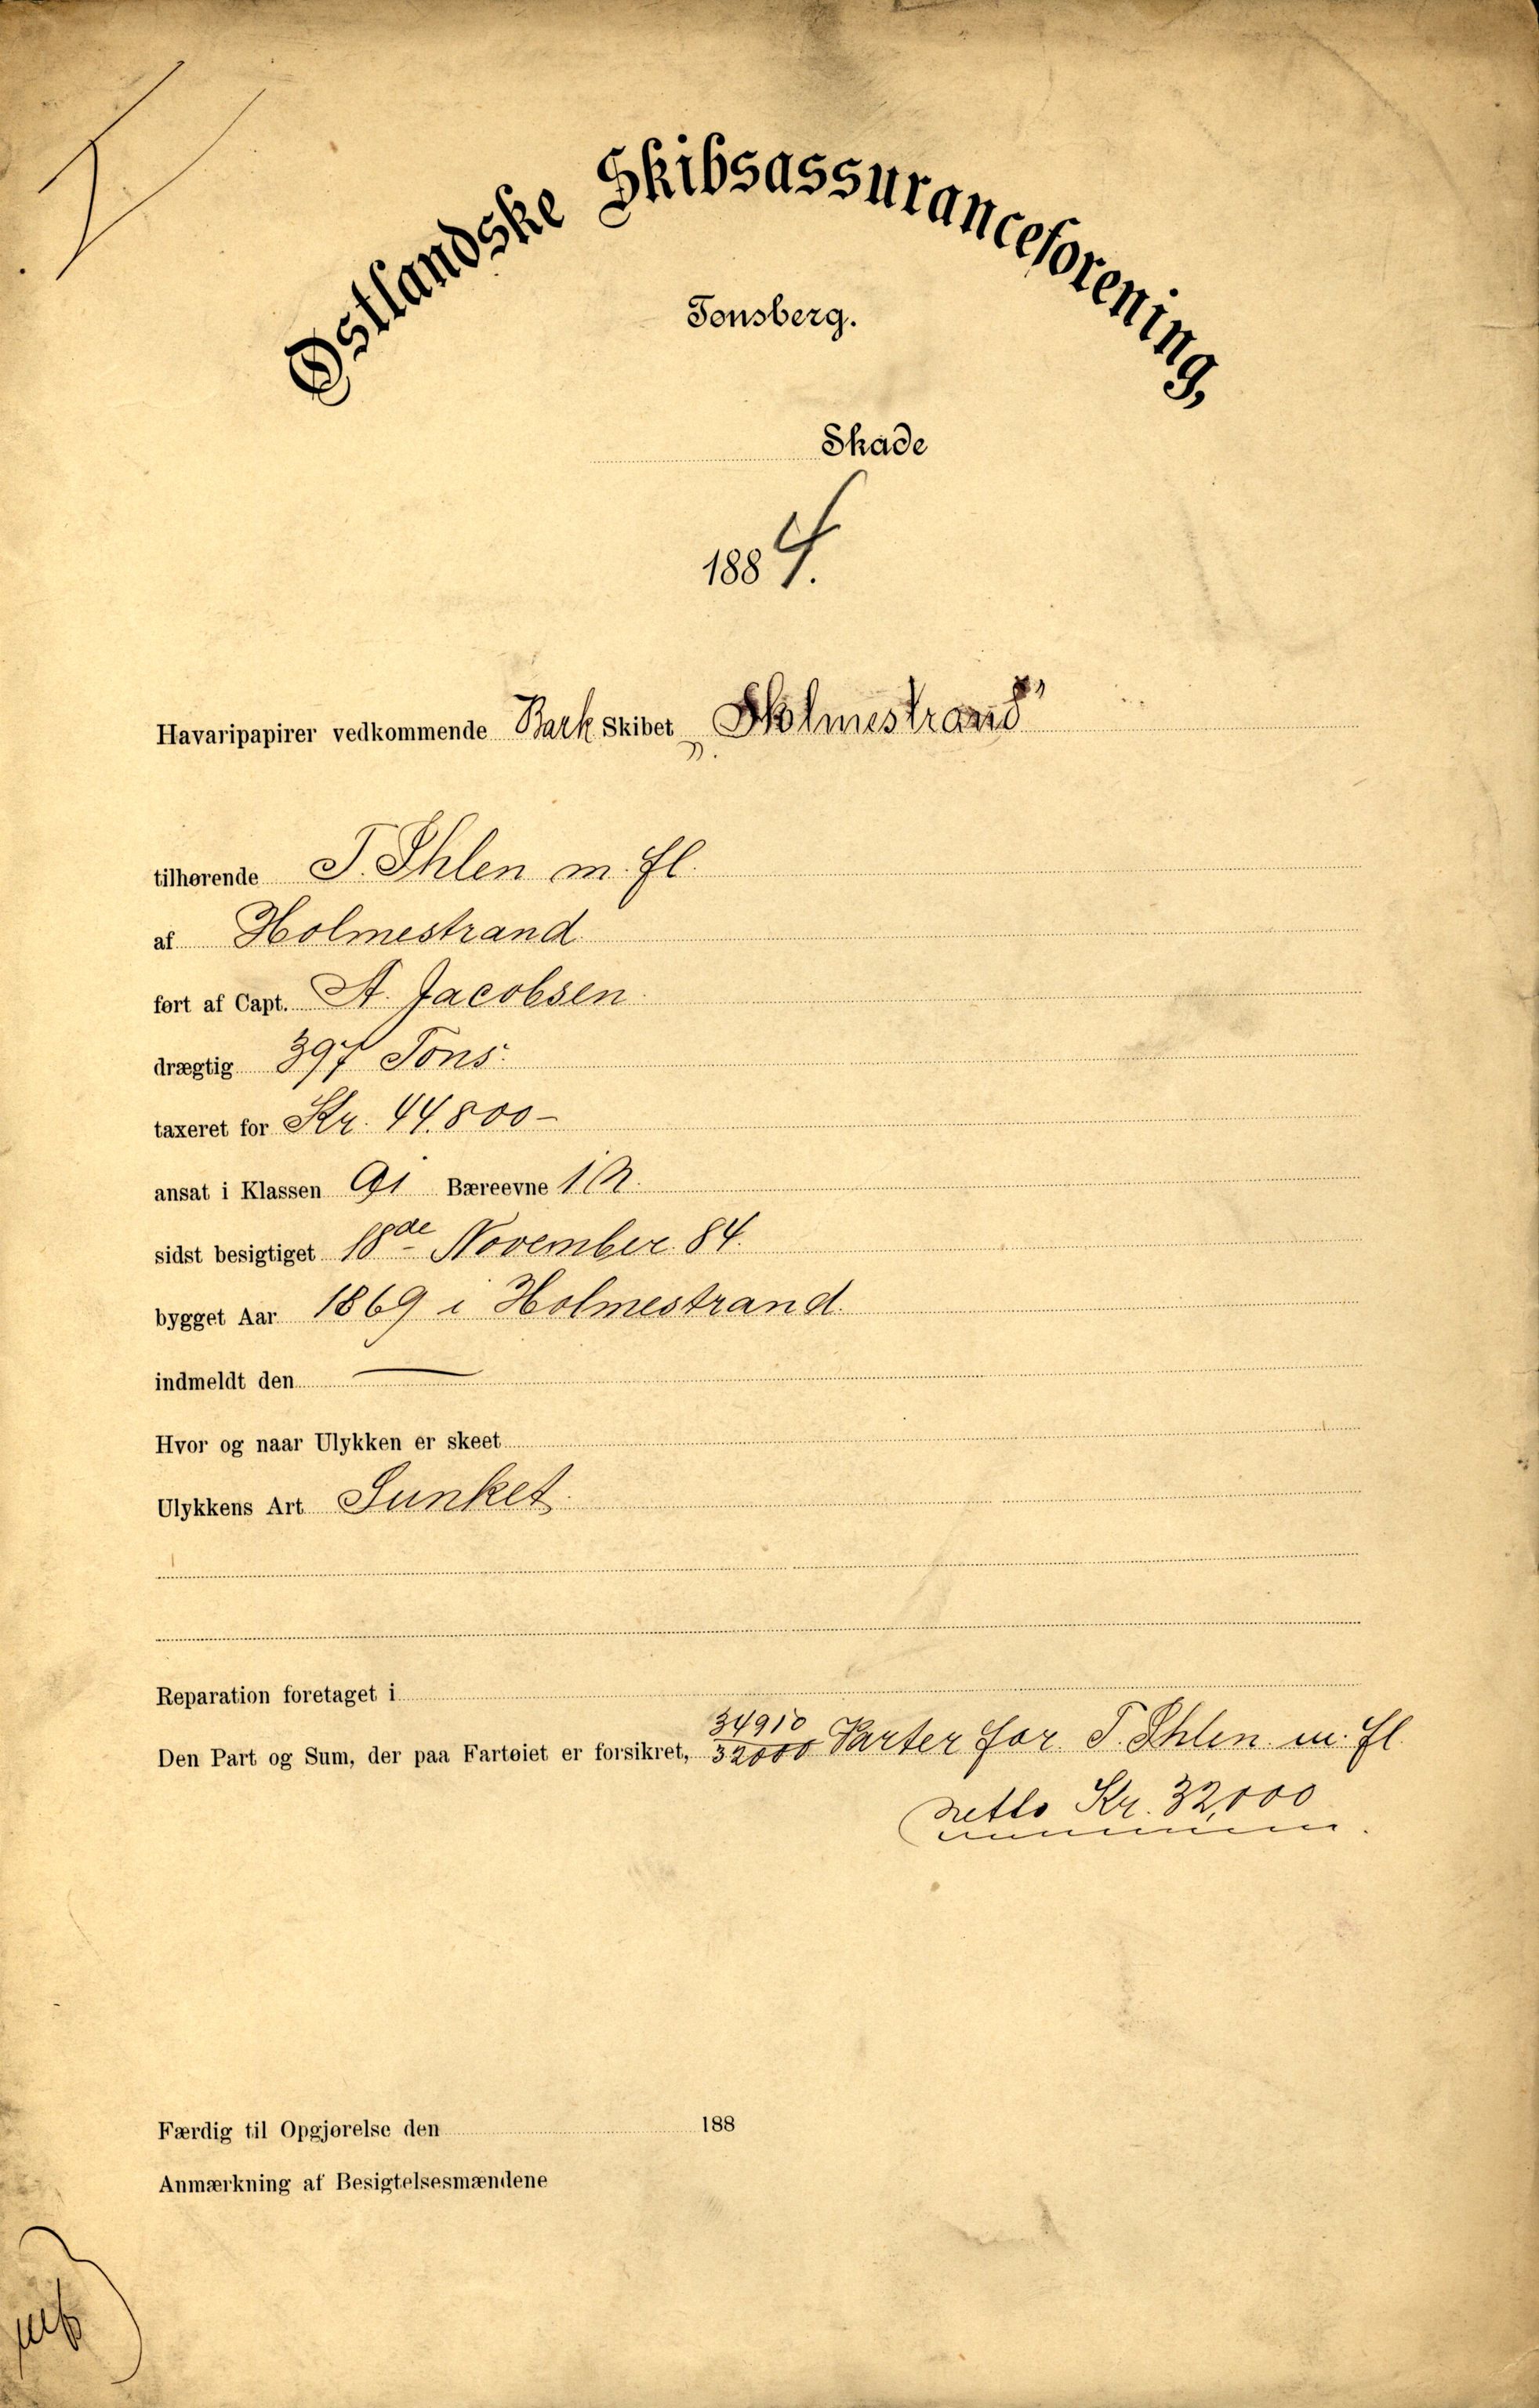 Østlandske Skibsassuranceforening,
Tønsberg.
Skade
1884.
Havaripapirer vedkommende Bark Skibet „Holmestrand"
tilhørende T. Ihlen m. fl.
af Holmestrand
ført af Capt. A. Jacobsen
drægtig 397 Tons.
taxeret for Kr. 44.800-
ansat i Klassen A1 Bæreevne 1
sidst besigtiget 18de November 84.
bygget Aar 1869 i Holmestrand.
indmeldt den —
Hvor og naar Ulykken er skeet
Ulykkens Art Sunket.
Reparation foretaget i
34910
Den Part og Sum, der paa Fartøiet er forsikret, 32000 Parter for T. Ihlen m. fl.
netto Kr. 32,000
Færdig til Opgjørelse den 188
Anmærkning af Besigtelsesmændene